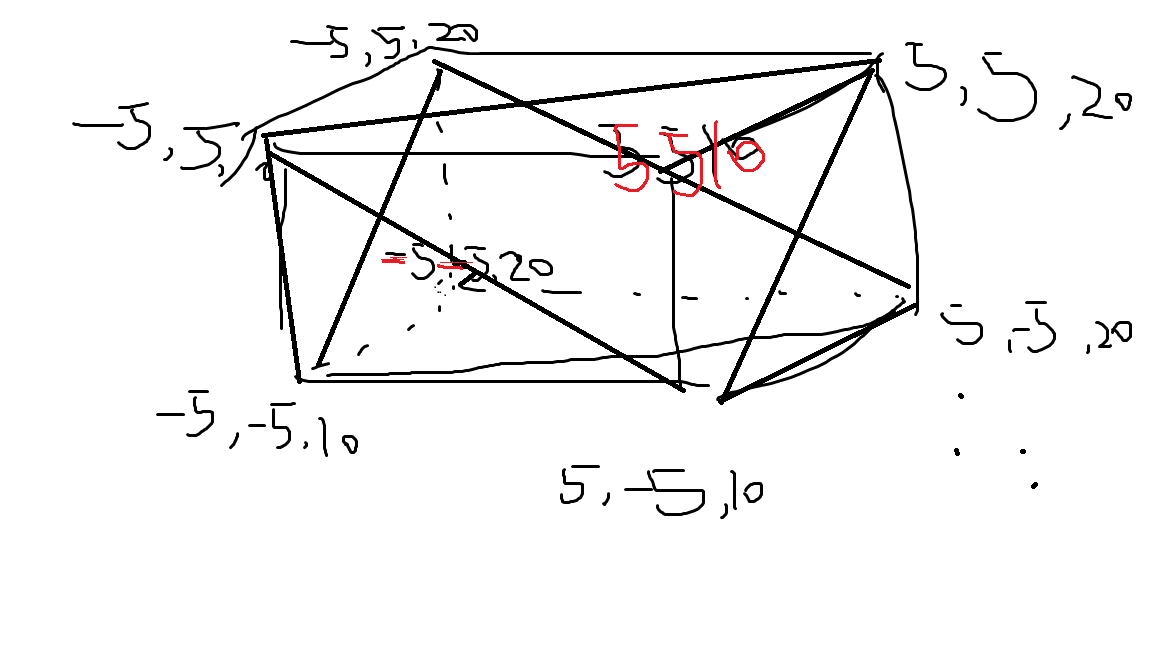 -5,5,20
5,5,20
-5,5,
5 5 10
-5,-5,20
5,-5,20
-5,-5,10
5,-5,10